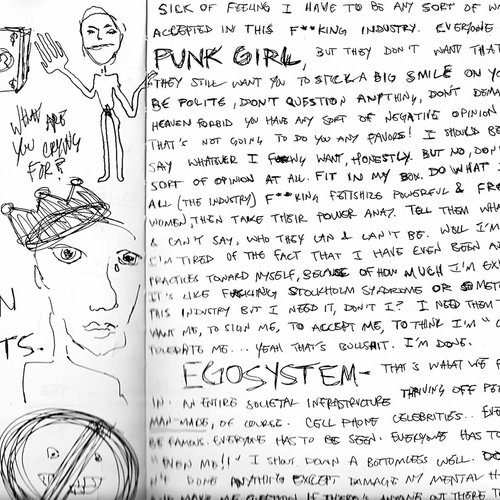 WHAT ARE
YOU CRYING
FOR?
N
TS.
SICK OF FEELING I HAVE TO BE ANY SORT OF W
ACCEPTED IN THIS F**KING INDUSTRY. EVERYONE
PUNK GIRL, BUT THEY DON'T WANT THAT
THEY STILL WANT YOU TO STICK A BIG SMILE ON YO
BE POLITE, DON'T QUESTION ANYTHING, DON'T DEMA
HEAVEN FORBID YOU HAVE ANY SORT OF NEGATIVE OPINION
THAT'S NOT GOING TO DO YOU ANY FAVORS! I SHOULD BE
SAY WHATEVER I WANT, HONESTLY. BUT NO, DON'
SORT OF OPINION AT ALL. FIT IN MY BOX. DO WHAT I
ALL (THE INDUSTRY) F**KING FETISHIZE POWERFUL & FRE
WOMEN, THEN TAKE THEIR POWER AWAY. TELL THEM WHA
& CAN'T SAY, WHO THEY CAN & CAN'T BE. WELL I'M
I'M TIRED OF THE FACT THAT I HAVE EVEN BEEN
PRACTICES TOWARD MYSELF, BECAUSE OF HOW MUCH I'M EX
IT'S LIKE FUCKING STOCKHOLM SYNDROME OR SOMET
THIS INDUSTRY BUT I NEED IT, DON'T I? I NEED THEM
WANT ME, TO SIGN ME, TO ACCEPT ME, TO THINK I'M "C
TOLERATE ME... YEAH THAT'S BULLSHIT. I'M DONE.
EGOSYSTEM- THAT'S WHAT WE
IN. AN ENTIRE SOCIETAL INFRASTRUCTURE THRIVING OFF PE
MAN MADE, OF COURSE. CELL PHONE CELEBRITIES... EVE
BE FAMOUS. EVERYONE HAS TO BE SEEN. EVERYONE HAS TO
ME!!" I SHOUT DOWN A BOTTOMLESS WELL. DO
DONE ANYTHING EXCEPT DAMAGE MY MENTAL H
MAKE ME QUESTION IF THERE'S ANYONE OUT THERE